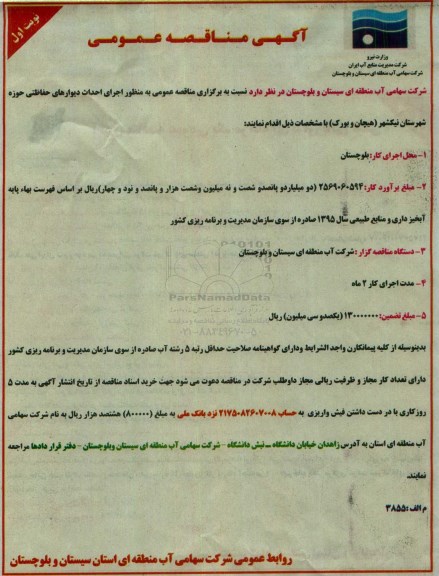 نوبت اول
آگهی مناقصه عمومی
وزارت نیرو
شرکت مدیریت منابع آب ایران
شرکت سهامی آب منطقه ای سیستان و بلوچستان
شرکت سهامی آب منطقه ای سیستان و بلوچستان در نظر دارد نسبت به برگزاری مناقصه عمومی به منظور اجرای احداث دیوارهای حفاظتی حوزه
شهرستان نیکشهر (هیچان و بورک) با مشخصات ذیل اقدام نمایند:
۱- محل اجرای کار: بلوچستان
۲- مبلغ برآورد کار: ۲۵۶۹۰۶۰۵۹۴ (دو میلیاردو پانصدو شصت و نه میلیون وشصت هزار و پانصد و نود و چهار)ریال بر اساس فهرست بهاء پایه
آبخیز داری و منابع طبیعی سال ۱۳۹۵ صادره از سوی سازمان مدیریت و برنامه ریزی کشور
۳- دستگاه مناقصه گزار: شرکت آب منطقه ای سیستان و بلوچستان
۴- مدت اجرای کار ۲ ماه
۵- مبلغ تضمین: ۱۳۰۰۰۰۰۰۰ (یکصدو سی میلیون) ریال
بدینوسیله از کلیه پیمانکارن واجد الشرایط ودارای گواهینامه صلاحیت حداقل رتبه ۵ رشته آب صادره از سوی سازمان مدیریت و برنامه ریزی کشور
دارای تعداد کار مجاز و ظرفیت ریالی مجاز داوطلب شرکت در مناقصه دعوت می شود جهت خرید اسناد مناقصه از تاریخ انتشار آگهی به مدت ۵
روزکاری با در دست داشتن فیش واریزی به حساب ۲۱۷۵۰۸۲۶۰۷۰۰۸ نزد بانک ملی به مبلغ (۸۰۰۰۰۰) هشتصد هزار ریال به نام شرکت سهامی
آب منطقه ای استان به آدرس زاهدان خیابان دانشگاه – نبش دانشگاه – شرکت سهامی آب منطقه ای سیستان وبلوچستان – دفتر قرار دادها مراجعه
نمایند.
م الف :۳۸۵۵
ParsNamadData
۰۲۱-۸۸۳۴۹۶۷۰-۵
روابط عمومی شرکت سهامی آب منطقه ای استان سیستان و بلوچستان